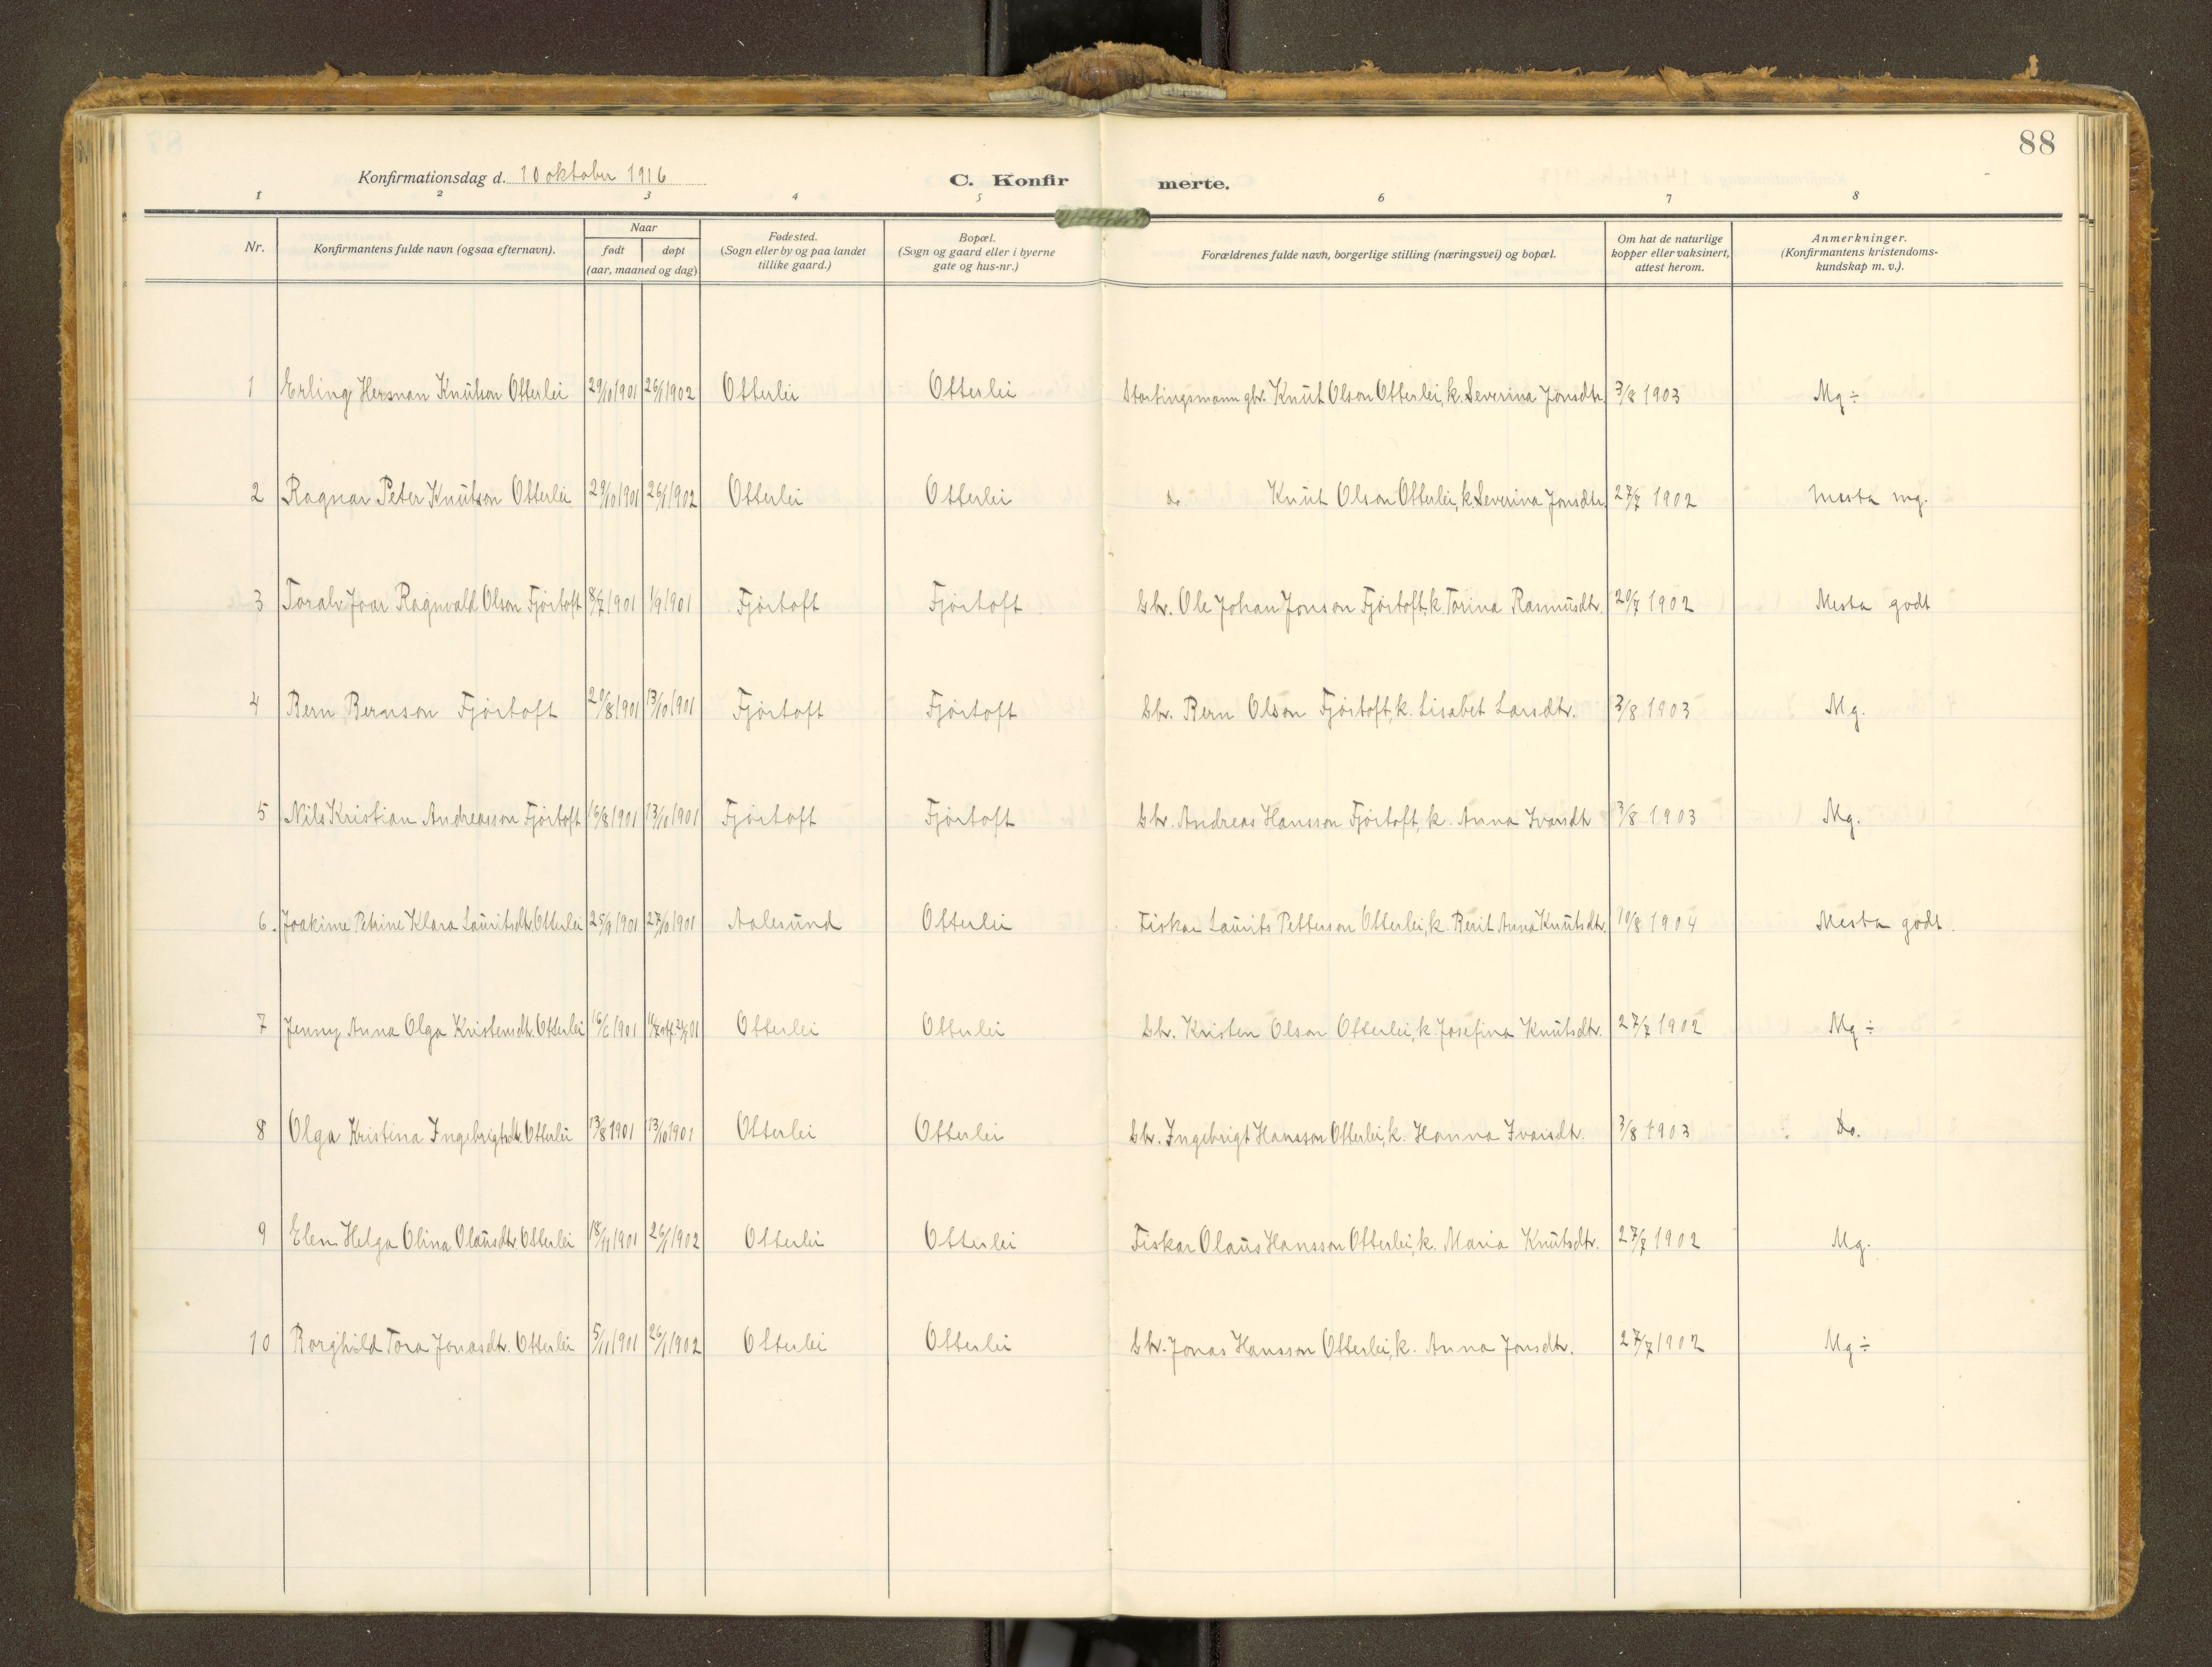 88
Konfirmationsdag d. 10 oktober 1916
C. Konfir merte.
1 2 3 4 5 6 7 8
Nr. Konfirmantens fulde navn (ogsaa efternavn). Naar født døpt (aar, maaned og dag) Fødested. (Sogn eller by og paa landet tillike gaard.) Bopæl. (Sogn og gaard eller i byerne gate og hus-nr.) Forældrenes fulde navn, borgerlige stilling (næringsvei) og bopæl. Om hat de naturlige kopper eller vaksinert, attest herom. Anmerkninger. (Konfirmantens kristendoms-kundskap m. v.).
1 Erling Herman Knutson Otterlei 29/10 1901 26/1 1902 Otterlei Otterlei Stortingsmann gbr. Knut Olson Otterlei, k. Severina Jonsdtr. 3/8 1903 Mg ÷
2 Ragnar Peter Knutson Otterlei 29/10 1901 26/1 1902 Otterlei Otterlei do Knut Olson Otterlei, k. Severina Jonsdtr. 27/7 1902 Mesta mg.
3 Toralv Ivar Ragnvald Olson Fjörtoft 8/7 1901 1/9 1901 Fjörtoft Fjörtoft Gbr. Ole Johan Jonson Fjörtoft, k. Torina Rasmusdtr. 20/7 1902 Mesta godt
4 Bern Bernson Fjörtoft 29/8 1901 13/10 1901 Fjörtoft Fjörtoft Gbr. Bern Olson Fjörtoft, k. Lisabet Larsdtr. 3/8 1903 Mg.
5 Nils Kristian Andreasson Fjörtoft 16/8 1901 13/10 1901 Fjörtoft Fjörtoft Gbr. Andreas Hansson Fjörtoft, k. Anna Ivarsdtr 3/8 1903 Mg.
6. Joakime Petrine Klara Lauritsdtr. Otterlei 25/9 1901 27/10 1901 Aalesund Otterlei Fiskar Laurits Petterson Otterlei, k. Berit Anna Knutsdtr. 10/8 1904 Mesta godt.
7 Jenny Anna Olga Kristensdtr. Otterlei 16/6 1901 Otterlei Otterlei Gbr. Kristen Olson Otterlei, k. Josefina Knutsdtr. 27/7 1902 Mg ÷
8 Olga Kristina Ingebrigtsdtr. Otterlei 13/8 1901 13/10 1901 Otterlei Otterlei Gbr. Ingebrigt Hansson Otterlei, k. Hanna Ivarsdtr. 3/8 1903 Do.
9 Elen Helga Olina Olausdtr. Otterlei 18/11 1901 26/1 1902 Otterlei Otterlei Fiskar Olaus Hansson Otterlei, k. Maria Knutsdtr. 27/7 1902 Mg.
10 Borghild Tora Jonasdtr. Otterlei 5/11 1901 26/1 1902 Otterlei Otterlei Gbr. Jonas Hansson Otterlei, k. Anna Jonsdtr. 27/7 1902 Mg ÷